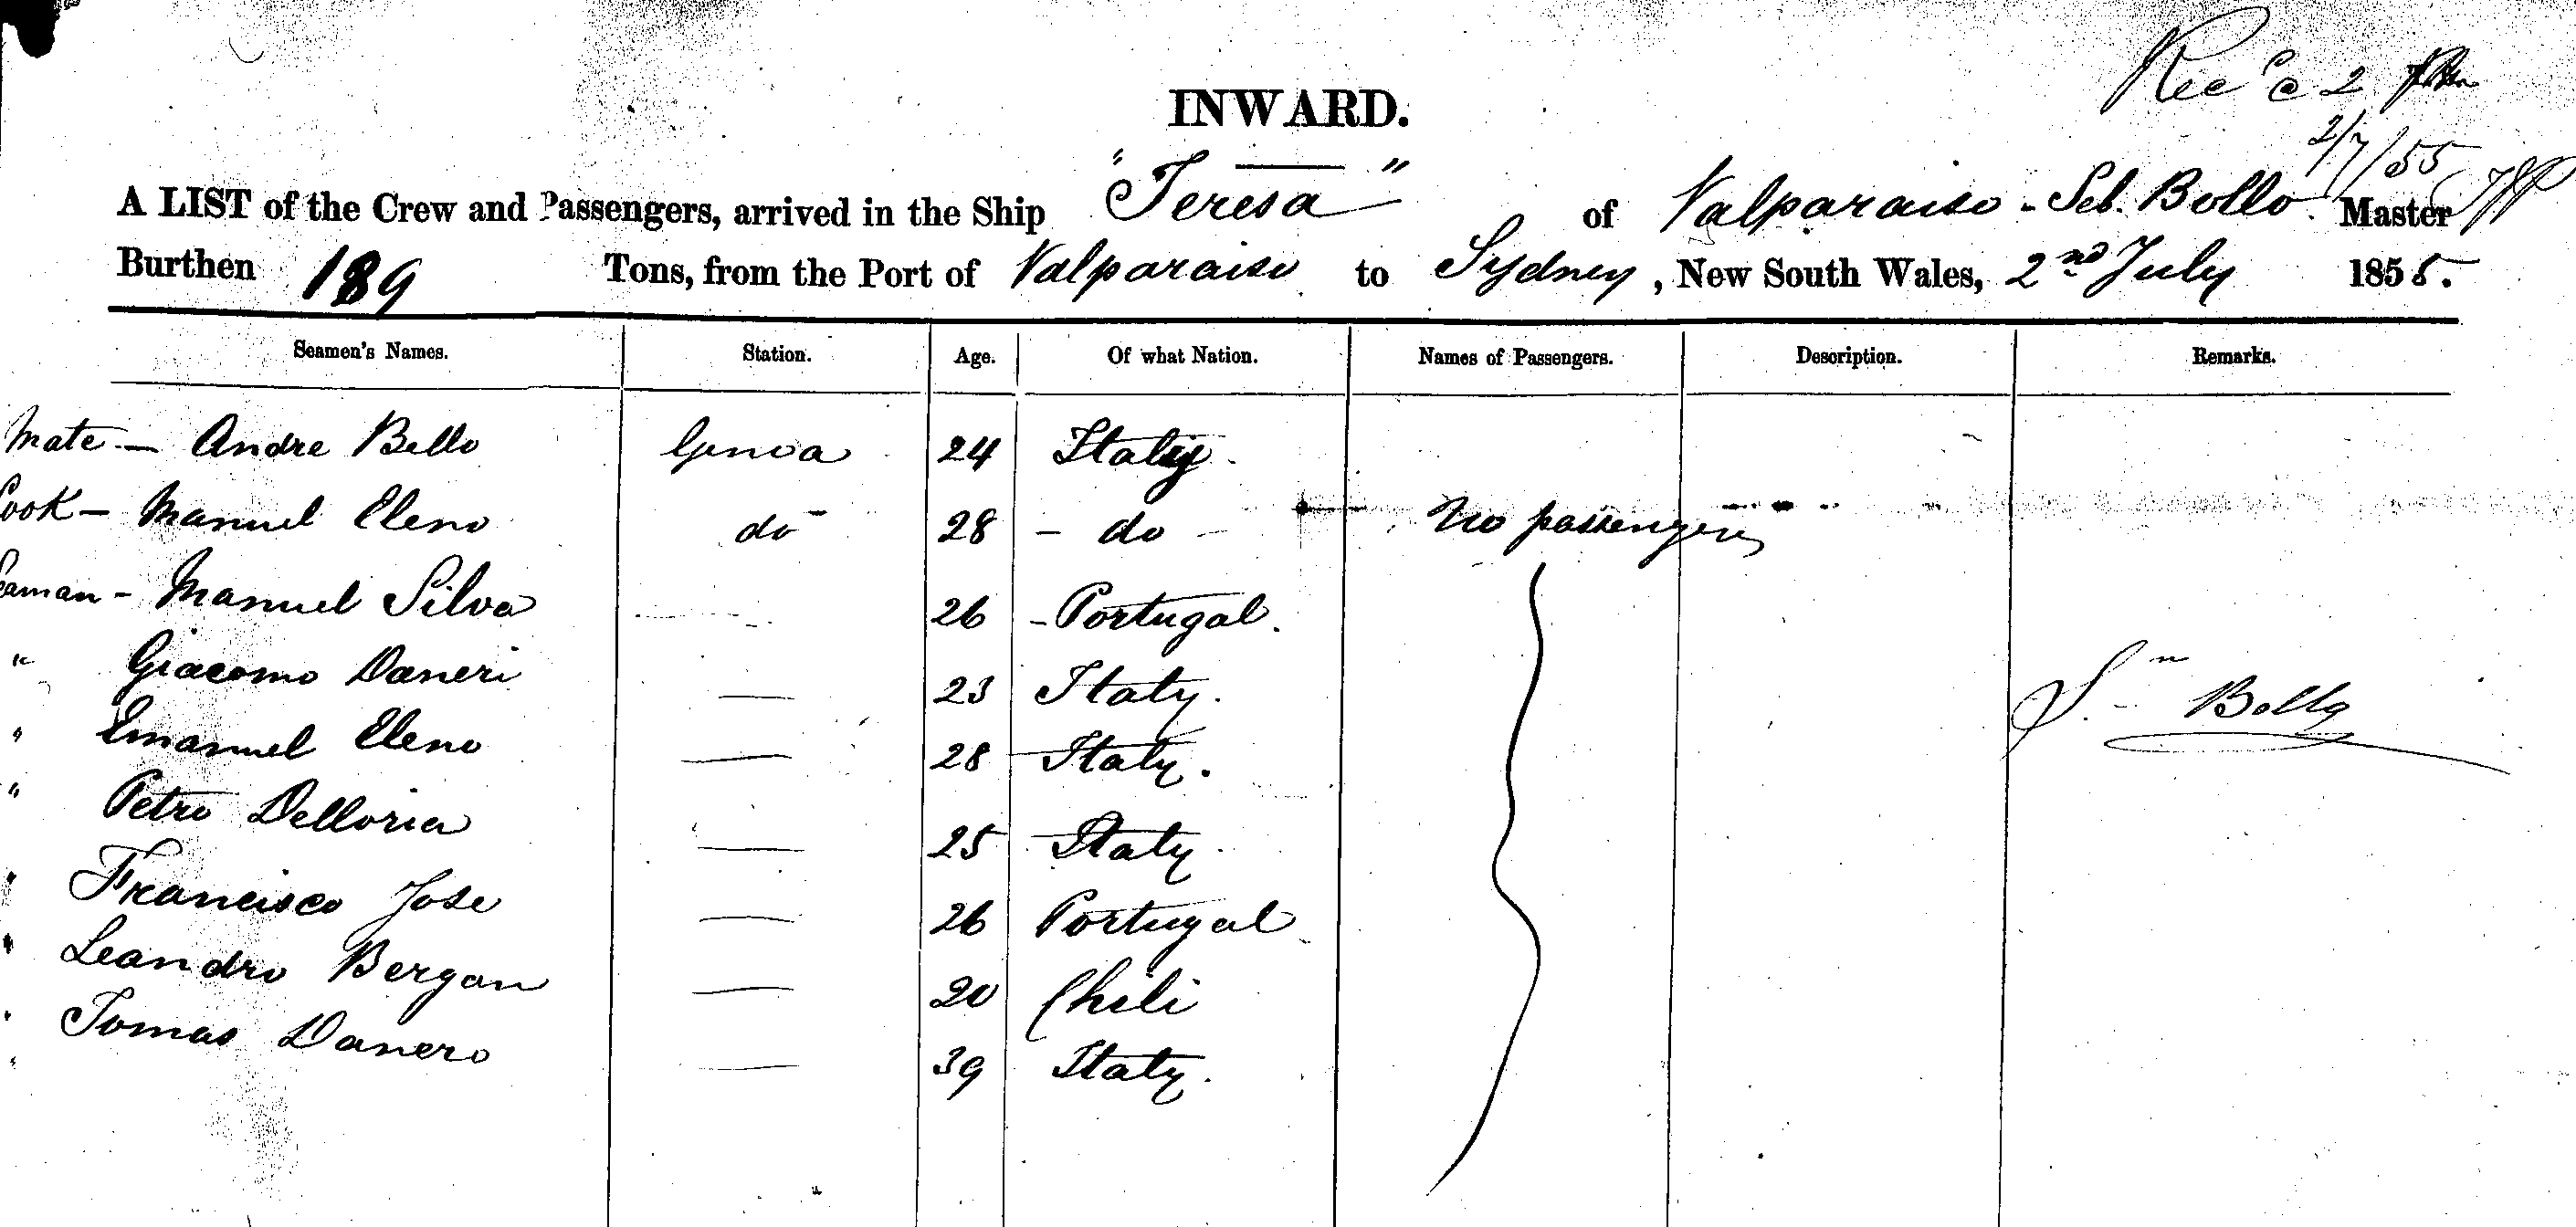 Rec'd 2
2/7/55
INWARD.
A LIST of the Crew and Passengers, arrived in the Ship "Teresa" of Valparaiso - Seb. Bollo Master
Burthen 189 Tons, from the Port of Valparaiso to Sydney, New South Wales, 2nd July 1855.
Seamen's Names. Station. Age. Of what Nation. Names of Passengers. Description. Remarks.
Mate - Andre Bello Genoa 24 Italy
Cook - Manuel Eleno do 28 - do - No passengers
Seaman - Manuel Silva 26 - Portugal.
" Giacomo Daneri 23 Italy.
" Emanuel Eleno 28 Italy.
S. Bollo
" Petro Delloria 25 Italy
" Francisco Jose 26 Portugal
" Leandro Bergan 20 Chili
" Tomas Danero 39 Italy.